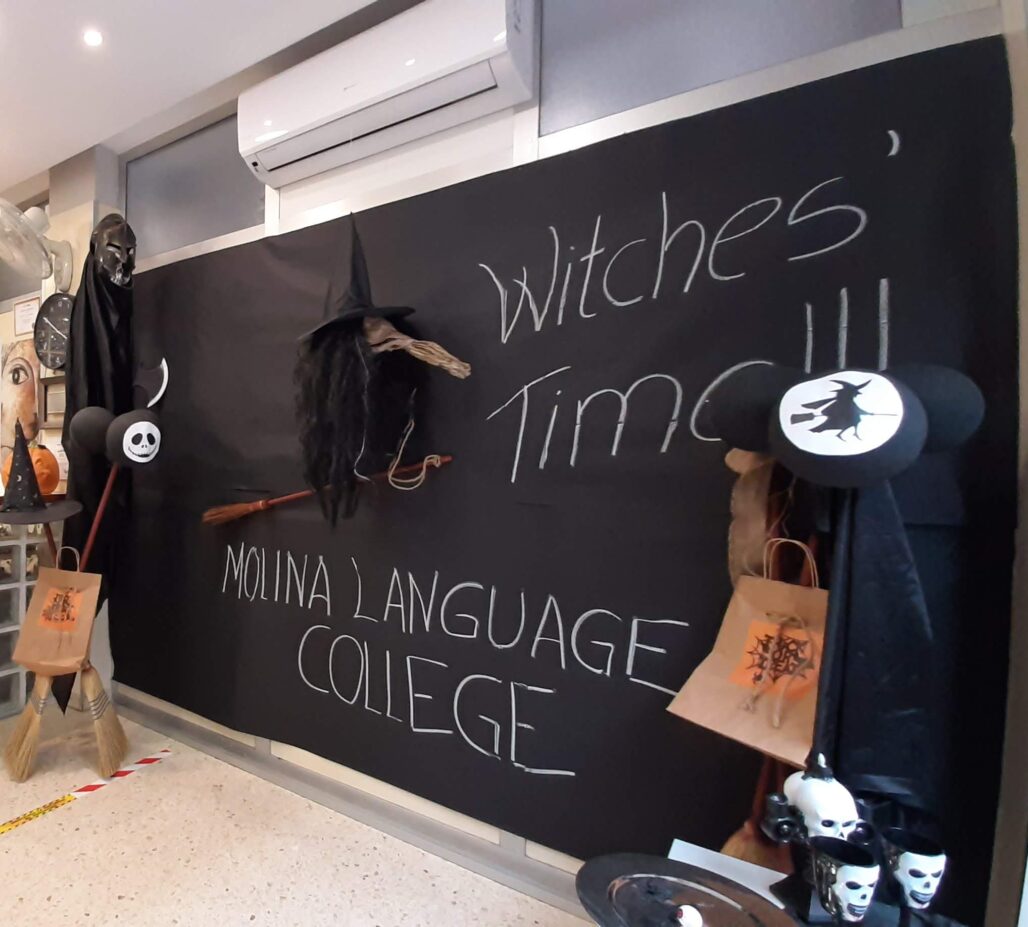 Witches'
Time !!!
MOLINA LANGUAGE
COLLEGE